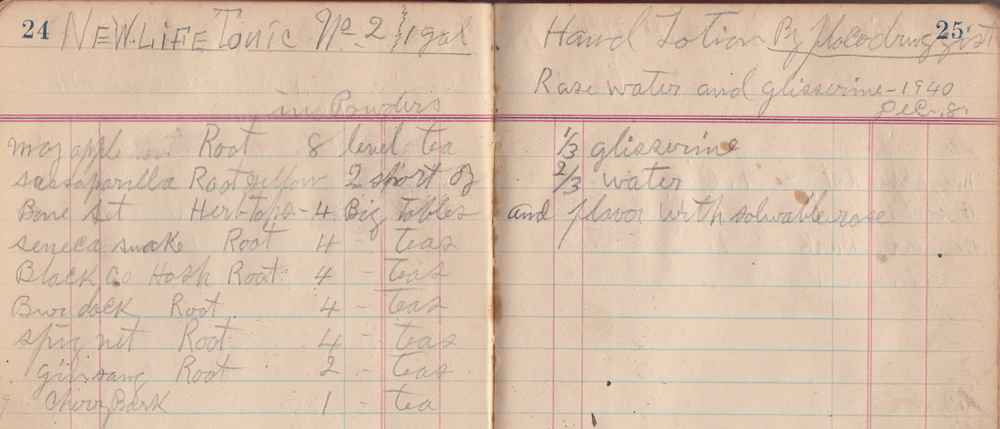 24 NEW-LiFE Tonic No. 2 1 gal
in Powders
mayapple Root 8 level tea
sassaparilla Root yellow 2 short oz
Bone set Herb-Tops-4 Big tables
seneca snake Root 4 - teas
Black Co Hosh Root 4 - teas
Burdock Root 4 - teas
spig net Root 4 - teas
ginsang Root 2 - teas
Bark 1 - tea
25
Hand Lotion By
Rose water and glisserine-1940
Dec-8.
1/3 glisserine
2/3 water
and flavor with solvable rose